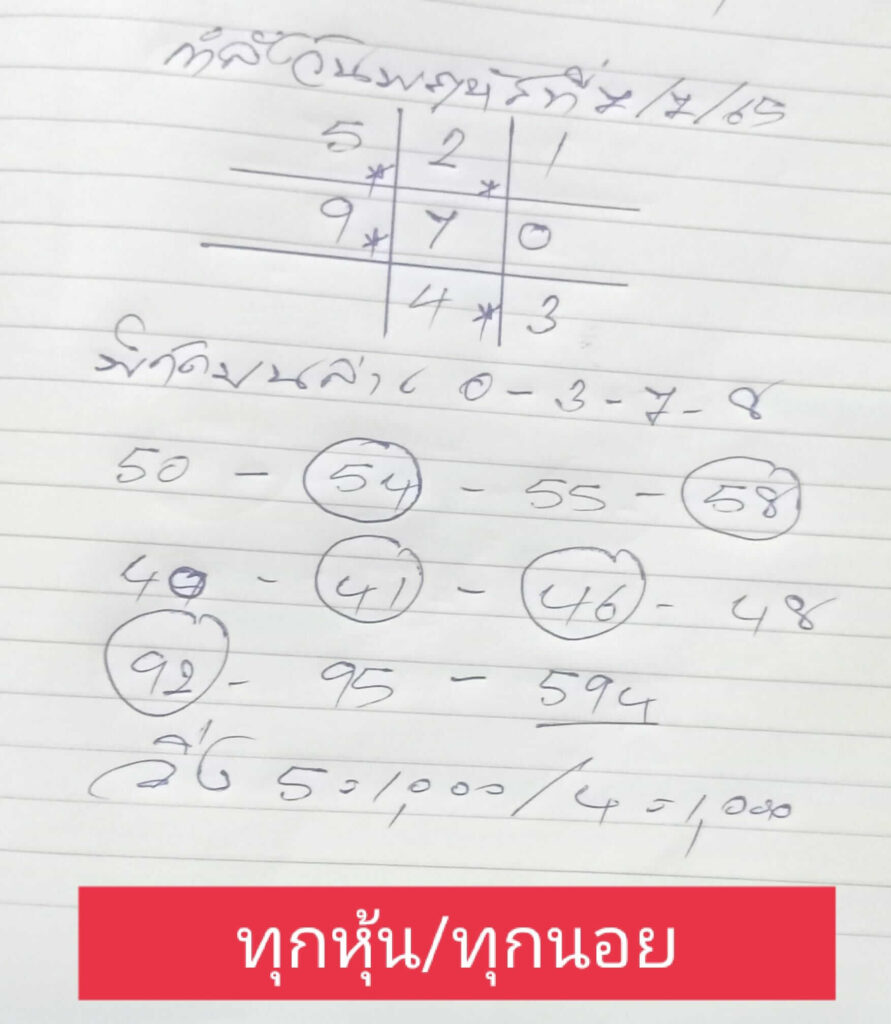 กำลังวันพฤหัสที่ 7/7/65
5 * 2 * 1
9 * 7 0
4 * 3
พิกัดบนล่าง 0 - 3 - 7 - 8
50 - 54 - 55 - 58
40 - 41 - 46 - 48
92 - 95 - 594
วิ่ง 5 = 1,000 / 4 = 1,000
ทุกหุ้น/ทุกนอย